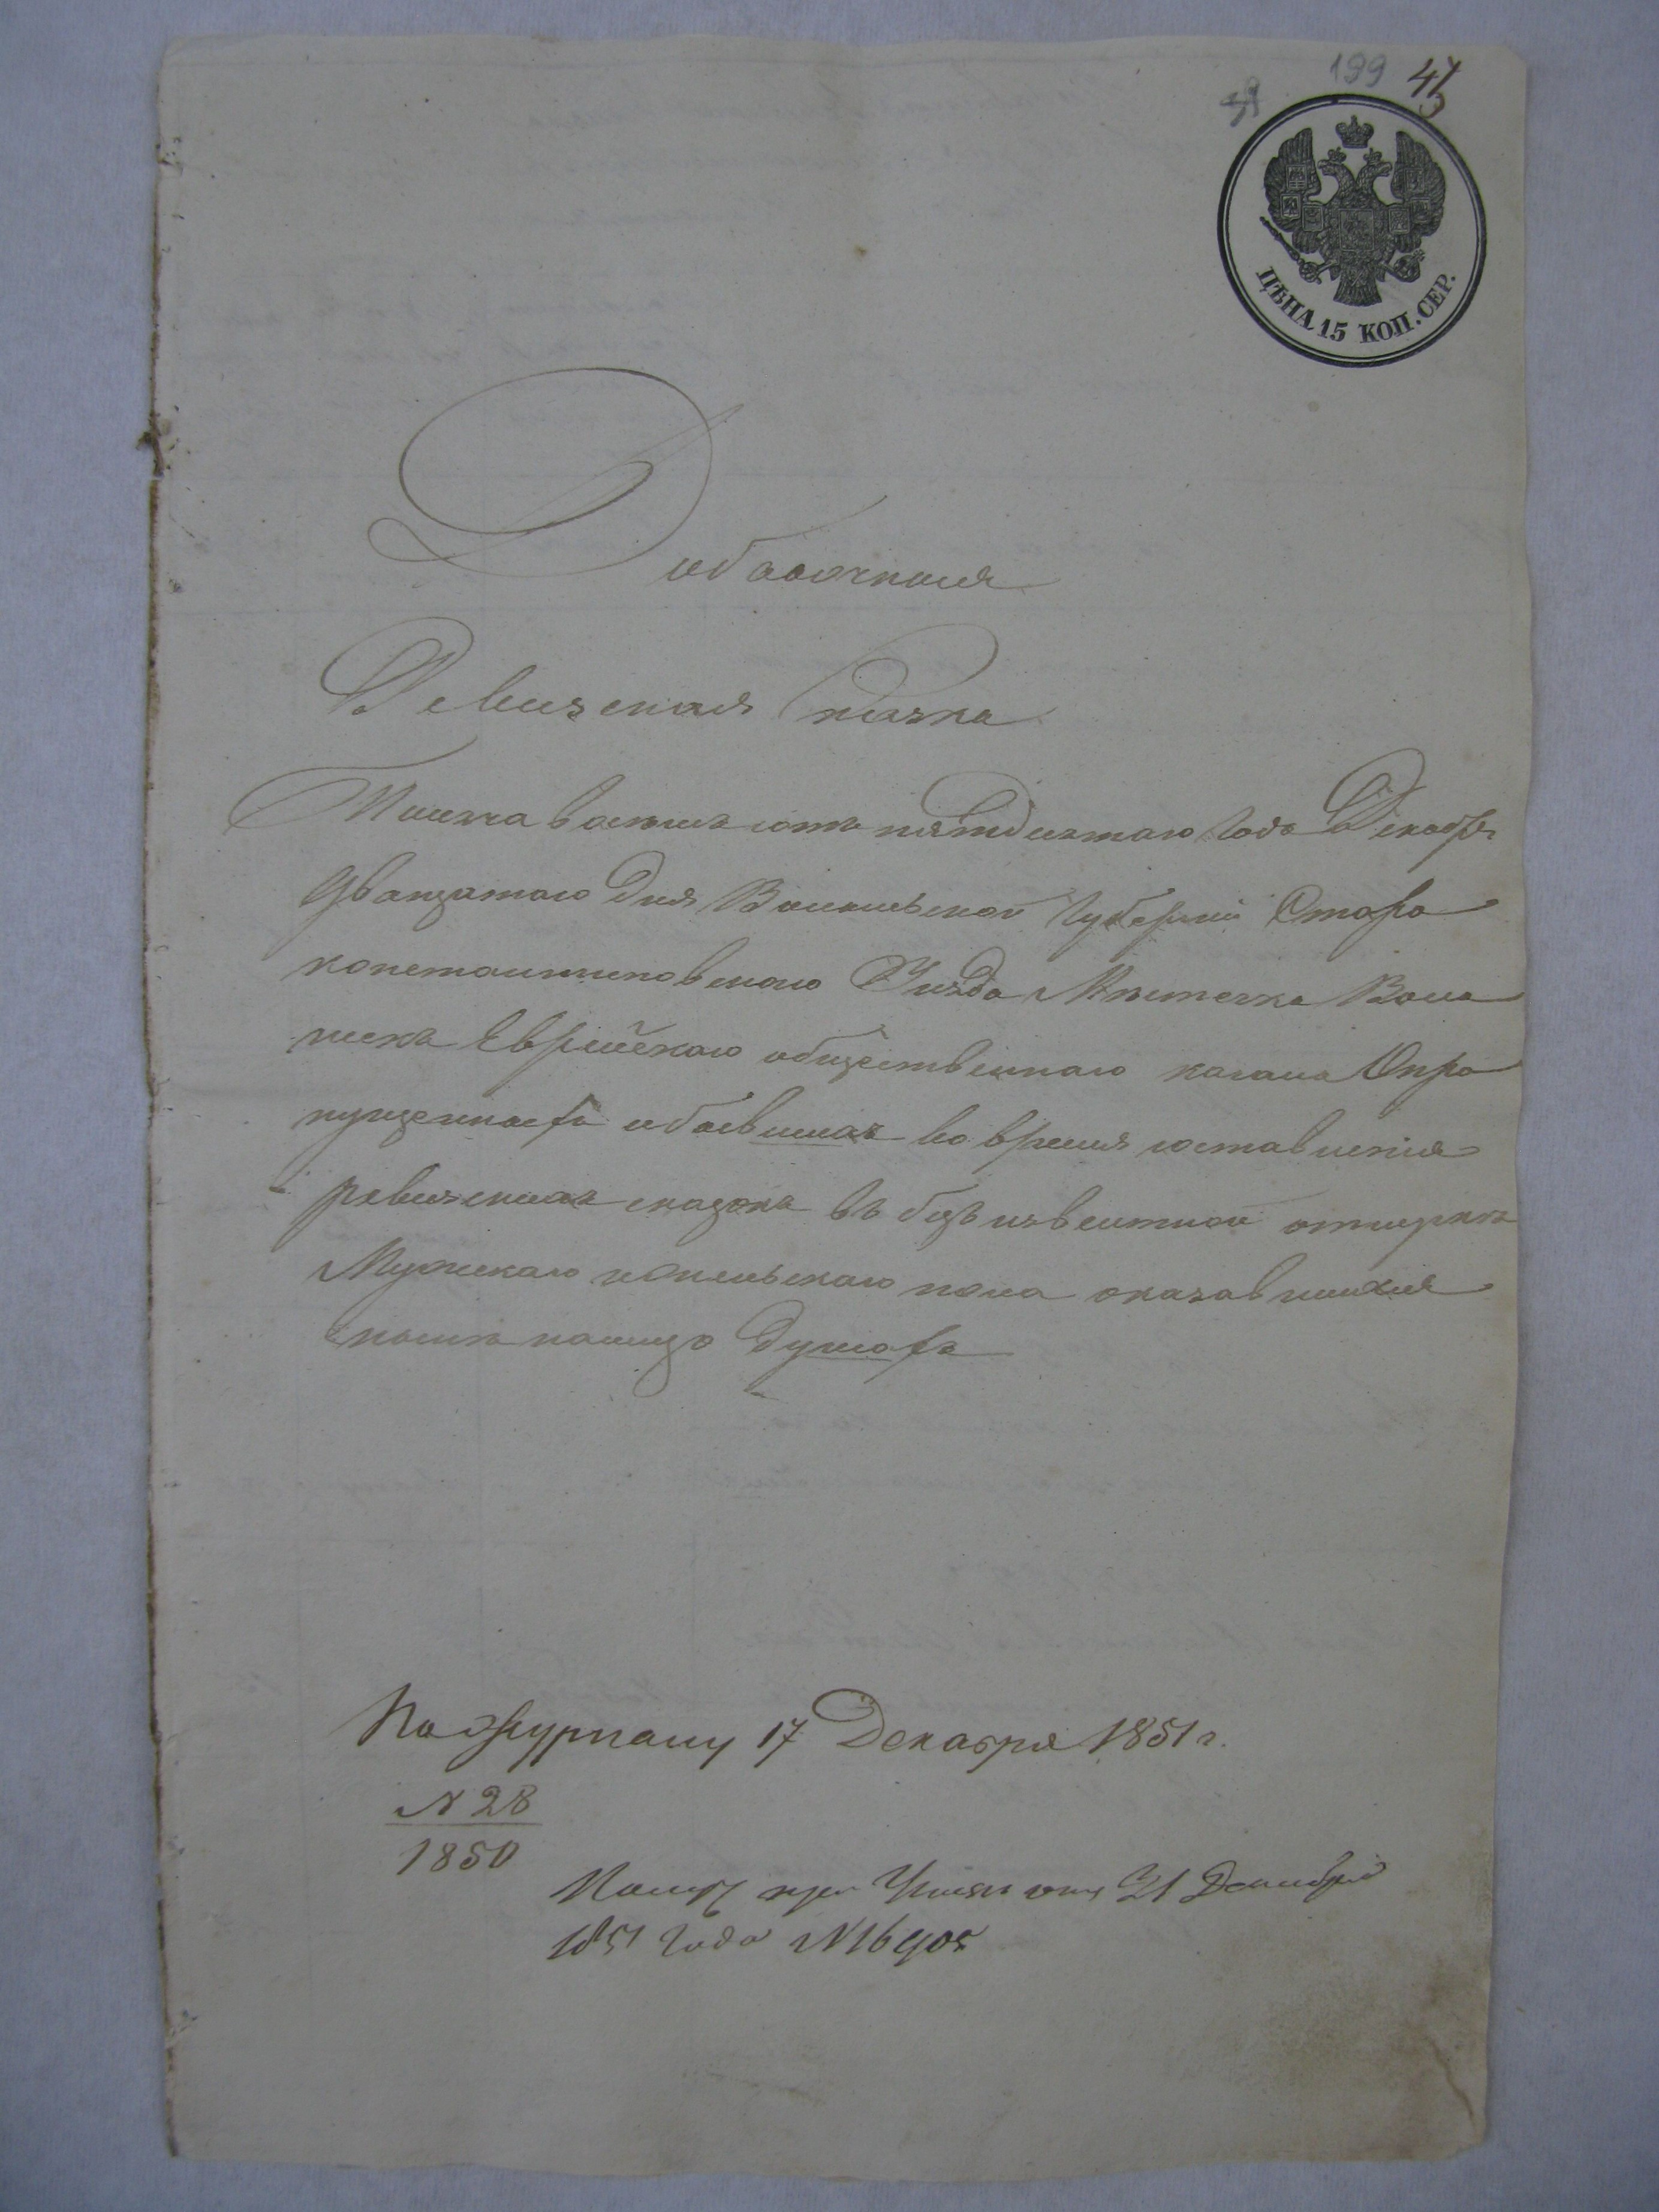 39 199 47
ЦѢНА 15 КОП. СЕР.
Добавочная
Ревизская Сказка
Тысяча восемь сотъ пятдесятаго Года Декабря
Двацатаго Дня Волынской Губерніи Старо
константиновскаго Уезда Местечка Вола
Еврейскаго общественнаго кагала О про
пущенныхъ обоевшихъ во время составленія
ревизскихъ сказокъ въ безъизвестной отлучкѣ
Мужескаго и Женскаго пола оказавшихся
налицо Душахъ
По Журналу 17 Декабря 1851 г.
N 28
1850
Получ. при 21 Декабря
1851 Года N 16905